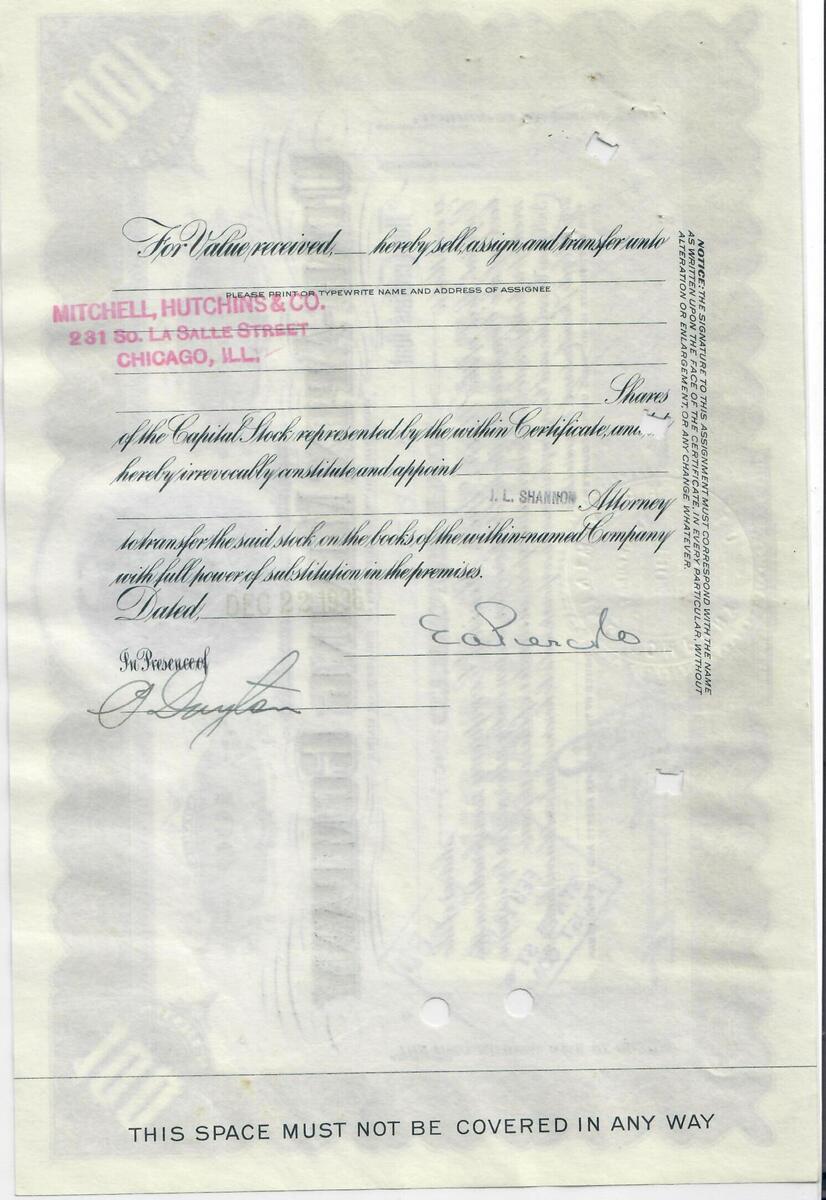 For Value received, ___ hereby sell, assign and transfer unto
PLEASE PRINT OR TYPEWRITE NAME AND ADDRESS OF ASSIGNEE
MITCHELL, HUTCHINS & CO.
231 SO. LA SALLE STREET
CHICAGO, ILL.
Shares
of the Capital Stock represented by the within Certificate, and
hereby irrevocably constitute and appoint
J. L. SHANNON Attorney
to transfer the said stock on the books of the within-named Company
with full power of substitution in the premises.
Dated, DEC 22
In Presence of
NOTICE: THE SIGNATURE TO THIS ASSIGNMENT MUST CORRESPOND WITH THE NAME
AS WRITTEN UPON THE FACE OF THE CERTIFICATE, IN EVERY PARTICULAR, WITHOUT
ALTERATION OR ENLARGEMENT, OR ANY CHANGE WHATEVER.
100
100
THIS SPACE MUST NOT BE COVERED IN ANY WAY